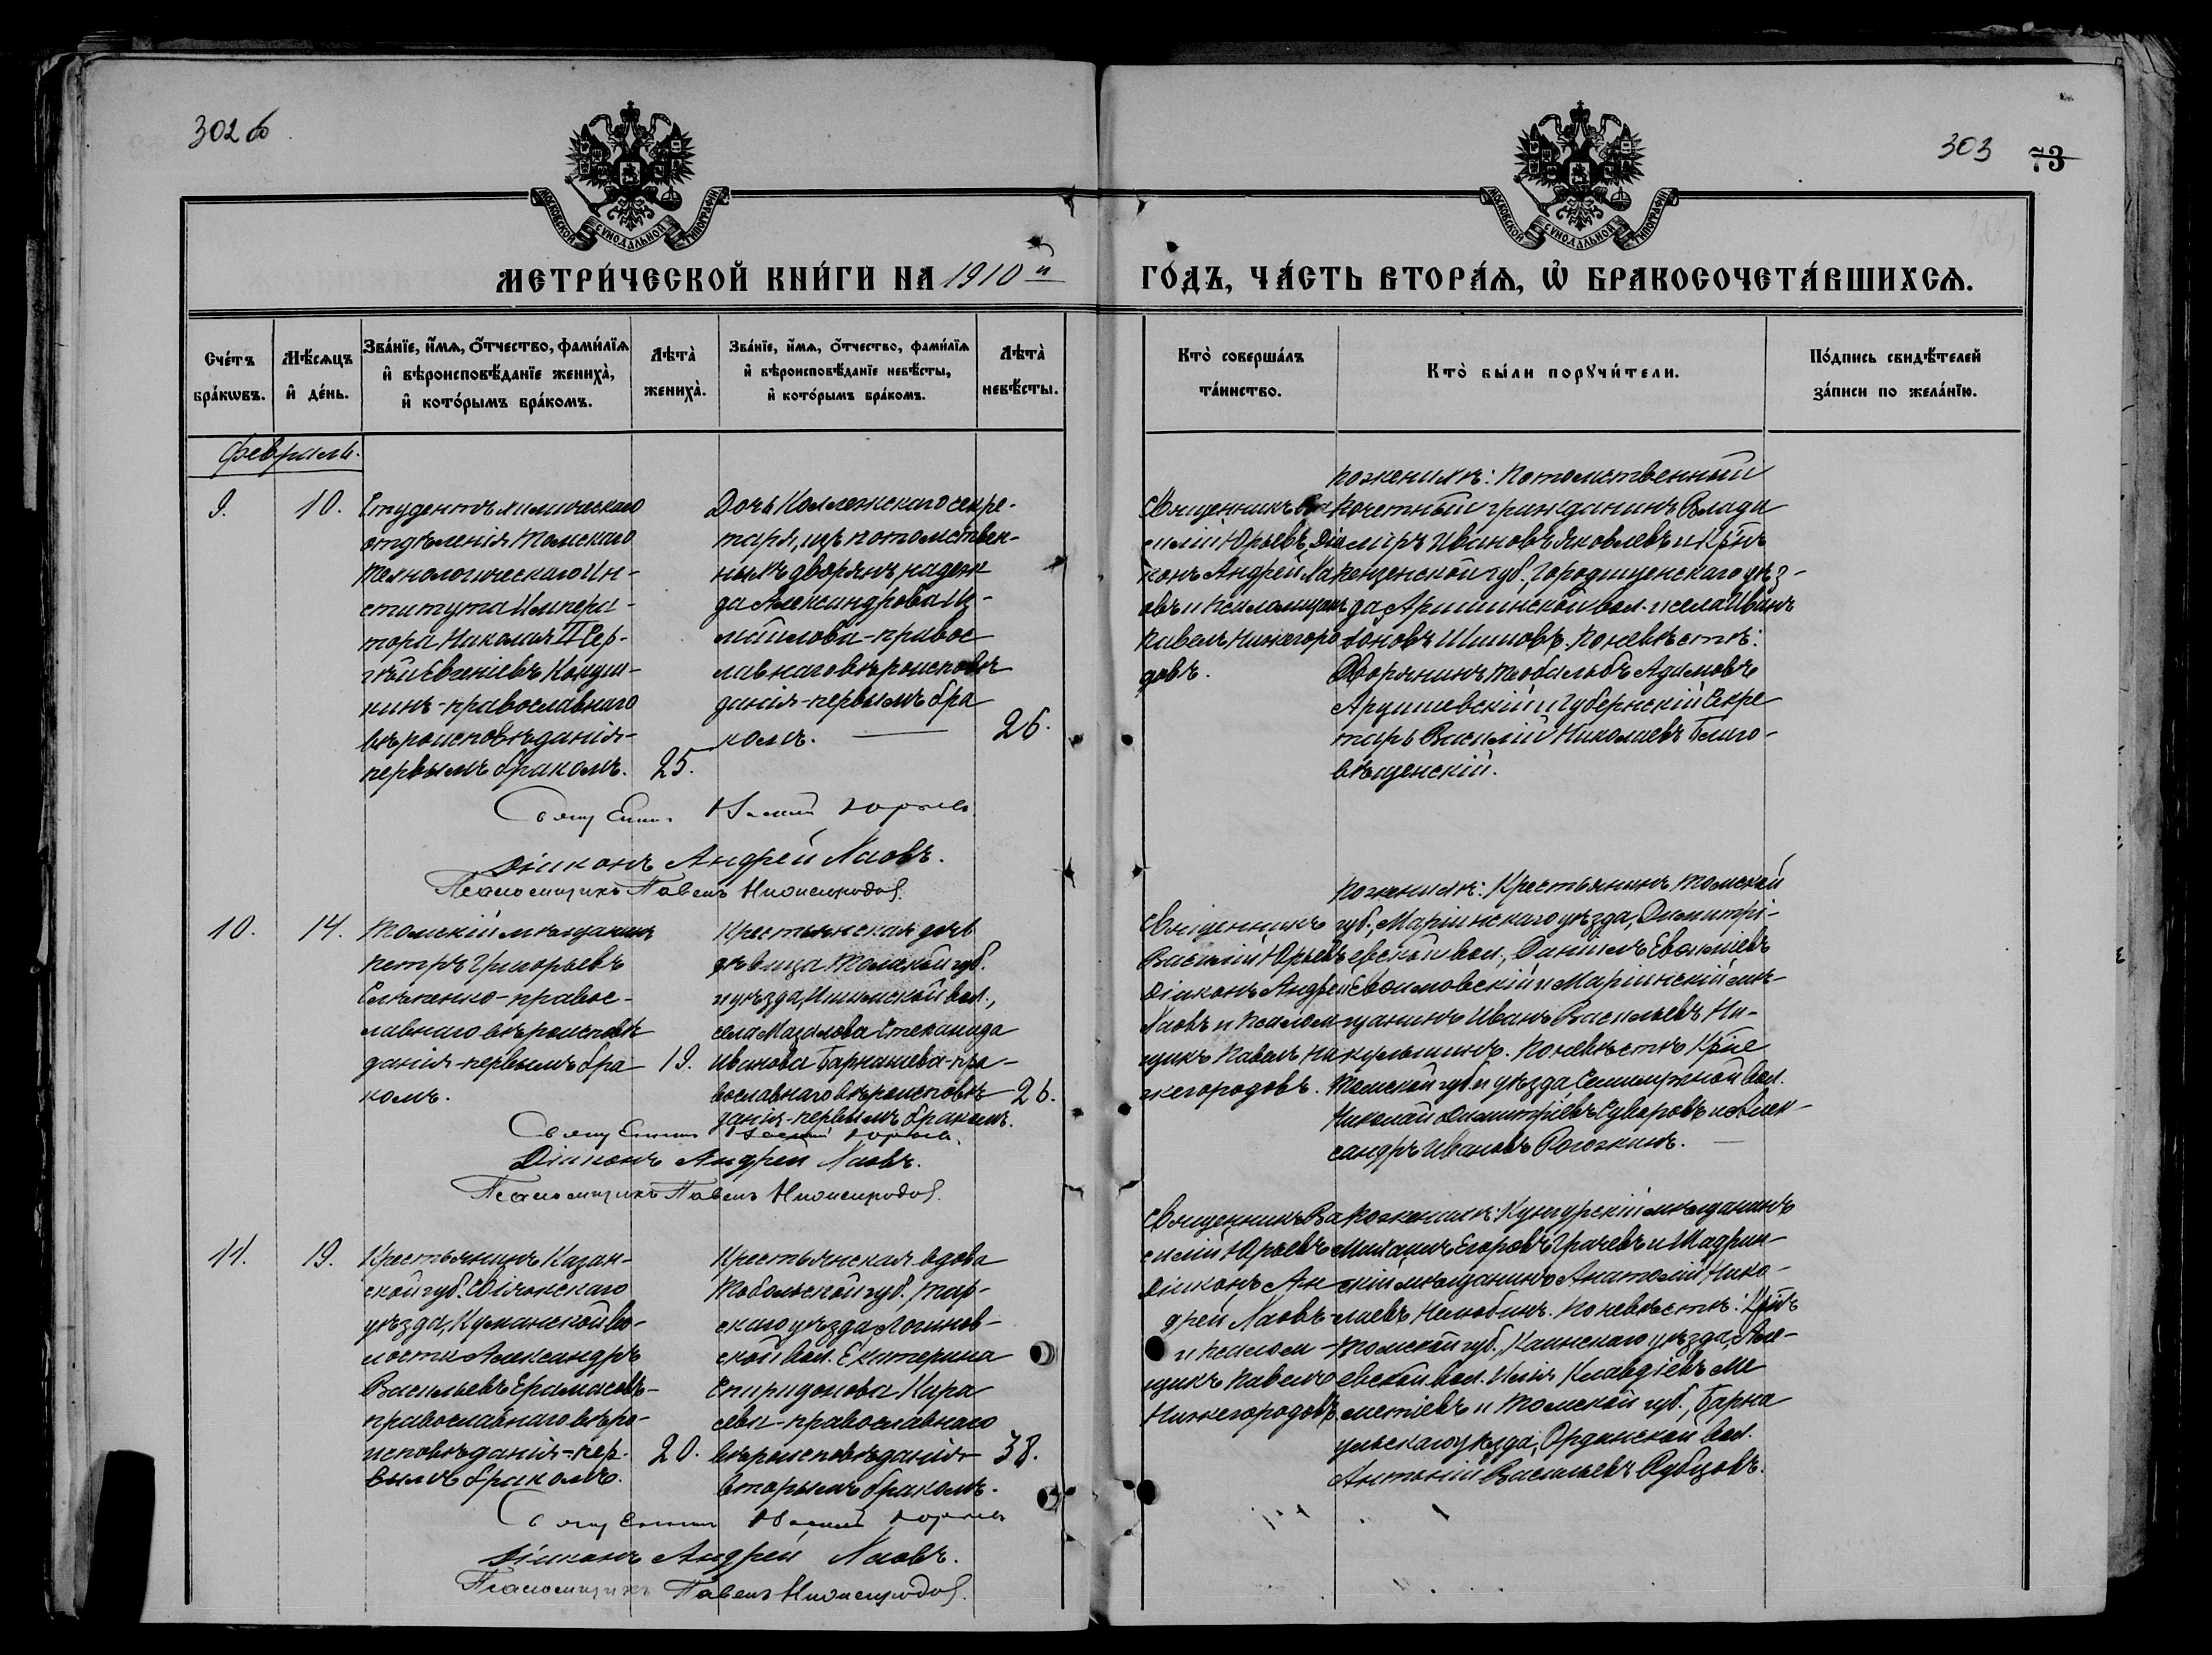 302 об
303 73
МОСКОВСКОЙ СѴНОДАЛЬНОЙ ТИПОГРАФІИ
МОСКОВСКОЙ СѴНОДАЛЬНОЙ ТИПОГРАФІИ
МЕТРИ́ЧЕСКОЙ КНИ́ГИ НА 1910й
ГО́ДЪ, ЧА́СТЬ ВТОРА́Ѧ, Ѡ҆ БРАКОСОЧЕТА́ВШИХСѦ.
Сче́тъ
бра́кѡвъ.
Мѣ́сяцъ
и҆ де́нь.
Зва́нїе, и҆́мѧ, ѻ҆́тчество, фами́лїѧ
и҆ вѣроисповѣ́данїе жениха̀,
и҆ кото́рымъ бра́комъ.
Лѣта̀
жениха̀.
Зва́нїе, и҆́мѧ, ѻ҆́тчество, фами́лїѧ
и҆ вѣроисповѣ́данїе невѣ́сты,
и҆ кото́рымъ бра́комъ.
Лѣта̀
невѣ́сты.
Кто̀ соверша́лъ
та́инство.
Кто̀ бы́ли порꙋчи́тели.
По́дпись свидѣ́телей
за́писи по жела́нїю.
Февраль.
9.
10.
Студентъ химическаго
отдѣленія Томскаго
Технологическаго Ин-
ститута Импера-
тора Николая II Сер-
гѣй Евгеніевъ
православнаго
вѣроисповѣданія-
первымъ бракомъ.
25.
Дочь Коллежскаго секре-
таря, изъ потомствен-
ныхъ дворянъ Надеж
да Александрова Из-
майлова-правос
лавнаго вѣроисповѣ
данія-первымъ бра
комъ.
26.
Священникъ Ва
силій Юрьевъ, Діа
конъ Андрей Ма
овъ и псаломщикъ
Павелъ Нижегоро
довъ.
По женихѣ: Потомственный
почетный гражданинъ Влади
міръ Ивановъ Яковлевъ и Кр-нъ
Пензенской губ., Городищенскаго уѣз-
да вол. и села Иванъ
Шишовъ. По невѣстѣ:
Дворянинъ Теобальдъ Адамовъ
и Губернскій Секре
тарь Василій Николаевъ Благо-
вѣщенскій.
Священникъ Василій Юрьевъ
Діаконъ Андрей Маовъ.
Псаломщикъ Павелъ Нижегородов.
10.
14.
Томскій мѣщанинъ
Петръ Григорьевъ
правос-
лавнаго вѣроисповѣ
данія-первымъ бра
комъ.
19.
Крестьянская дочь
дѣвица Томской губ.
и уѣзда, Ишимской вол.,
села Мазалова Степанида
Иванова пра-
вославнаго вѣроисповѣ
данія-первымъ бракомъ.
26.
Священникъ
Василій Юрьевъ
Діаконъ Андрей
Маовъ и псалом-
щикъ Павелъ Ни
жегородовъ.
По женихѣ: Крестьянинъ Томской
губ., Маріинскаго уѣзда, Димитрі-
евской вол., Даніилъ
и Маріинскій мѣ-
щанинъ Иванъ Васильевъ Ни-
кульшинъ. По невѣстѣ Кр-не
Томской губ. и уѣзда, Семилужной вол.
Николай Димитріевъ Суворовъ и Алек-
сандръ Ивановъ Рогожкинъ.
Священникъ Василій Юрьевъ.
Діаконъ Андрей Маовъ.
Псаломщикъ Павелъ Нижегородов.
11.
19.
Крестьянинъ Казан-
ской губ. Свіяжскаго
уѣзда, Кушанской во-
лости Александръ
Васильевъ Ерамасовъ-
православнаго вѣро-
исповѣданія-пер-
вымъ бракомъ.
20.
Крестьянская вдова
Тобольской губ. Тар-
скаго уѣзда Логинов-
ской вол. Екатерина
Спиридонова Кара
сева-православнаго
вѣроисповѣданія
вторымъ бракомъ.
38.
Священникъ Ва
силій Юрьевъ
Діаконъ Ан-
дрей Маовъ
и псалом-
щикъ Павелъ
Нижегородовъ.
По женихѣ: Кунгурскій мѣщанинъ
Михаилъ Егоровъ Грачевъ и Шадрин-
скій мѣщанинъ Анатолій Нико-
лаевъ Нелюбинъ. По невѣстѣ: Кр-нъ
Томской губ., Каинскаго уѣзда,
вол. Илія Клавдіевъ Ме
летіевъ и Томской губ., Барна
ульскаго уѣзда, Ординской вол.
Антоній Васильевъ Рубцовъ.
Священникъ Василій Юрьевъ
Діаконъ Андрей Маовъ.
Псаломщикъ Павелъ Нижегородов.